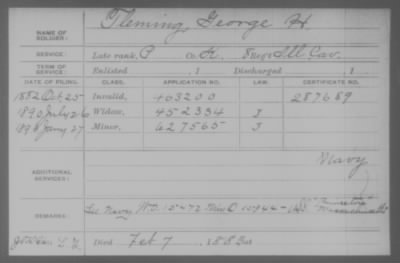 NAME OF SOLDIER: Fleming, George H.
SERVICE: Late rank, P Co. Reg't Ill Cav.
TERM OF SERVICE: Enlisted , 1 Discharged , 1
DATE OF FILING. CLASS. APPLICATION NO. LAW. CERTIFICATE NO.
1882 Oct 25 Invalid, 463200 287689
1890 July 26 Widow, 452334 J
Jany 27 Minor, 627565 J
Navy
ADDITIONAL SERVICES:
REMARKS: See Navy W.O. 15472 Min O 10944
Died Feb 7, 1883 at